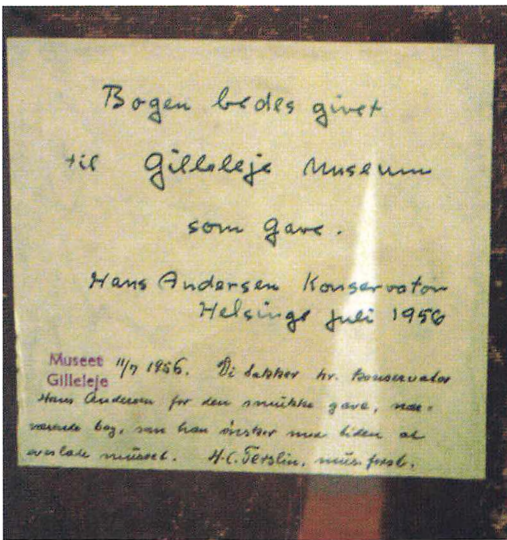 Bogen bedes givet
til Gilleleje Museum
som gave.
Hans Andersen Konservator
Helsinge Juli 1956
Museet
Gilleleje
11/7 1956. Vi takker hr. Konservator
Hans Andersen for den smukke gave, nær-
værende bog, som han ønsker med tiden at
overlade museet. H.C. Terslin, mus. forst.